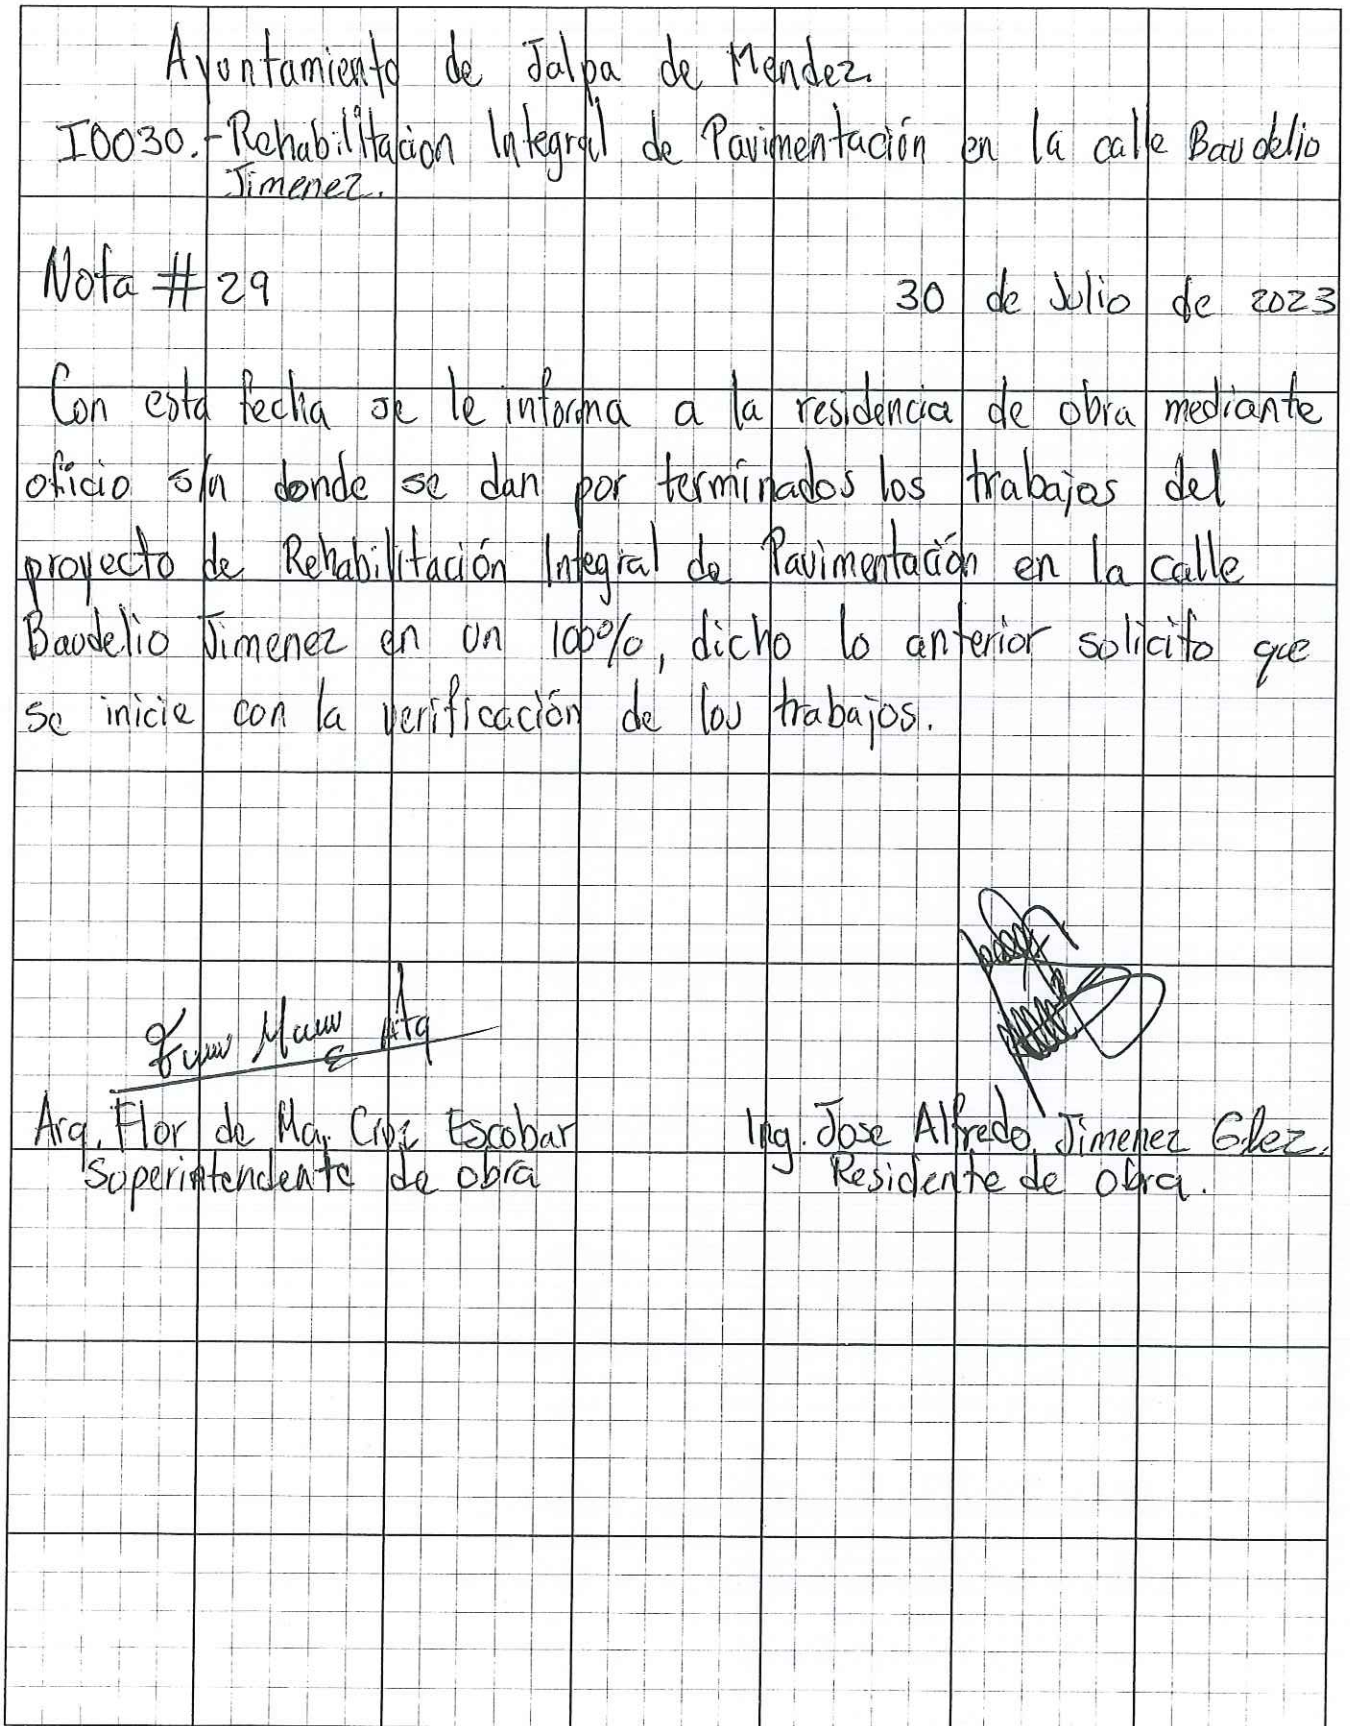 Ayuntamiento de Jalpa de Mendez.
I0030.-Rehabilitacion Integral de Pavimentación en la calle Baudelio
Jimenez.
Nota # 29
30 de Julio de 2023
Con esta fecha se le informa a la residencia de obra mediante
oficio s/n donde se dan por terminados los trabajos del
proyecto de Rehabilitación Integral de Pavimentación en la calle
Baudelio Jimenez en un 100%, dicho lo anterior solicito que
se inicie con la verificación de los trabajos.
Arq. Flor de Ma. Cruz Escobar
Superintendente de obra
Ing. Jose Alfredo Jimenez Glez.
Residente de obra.